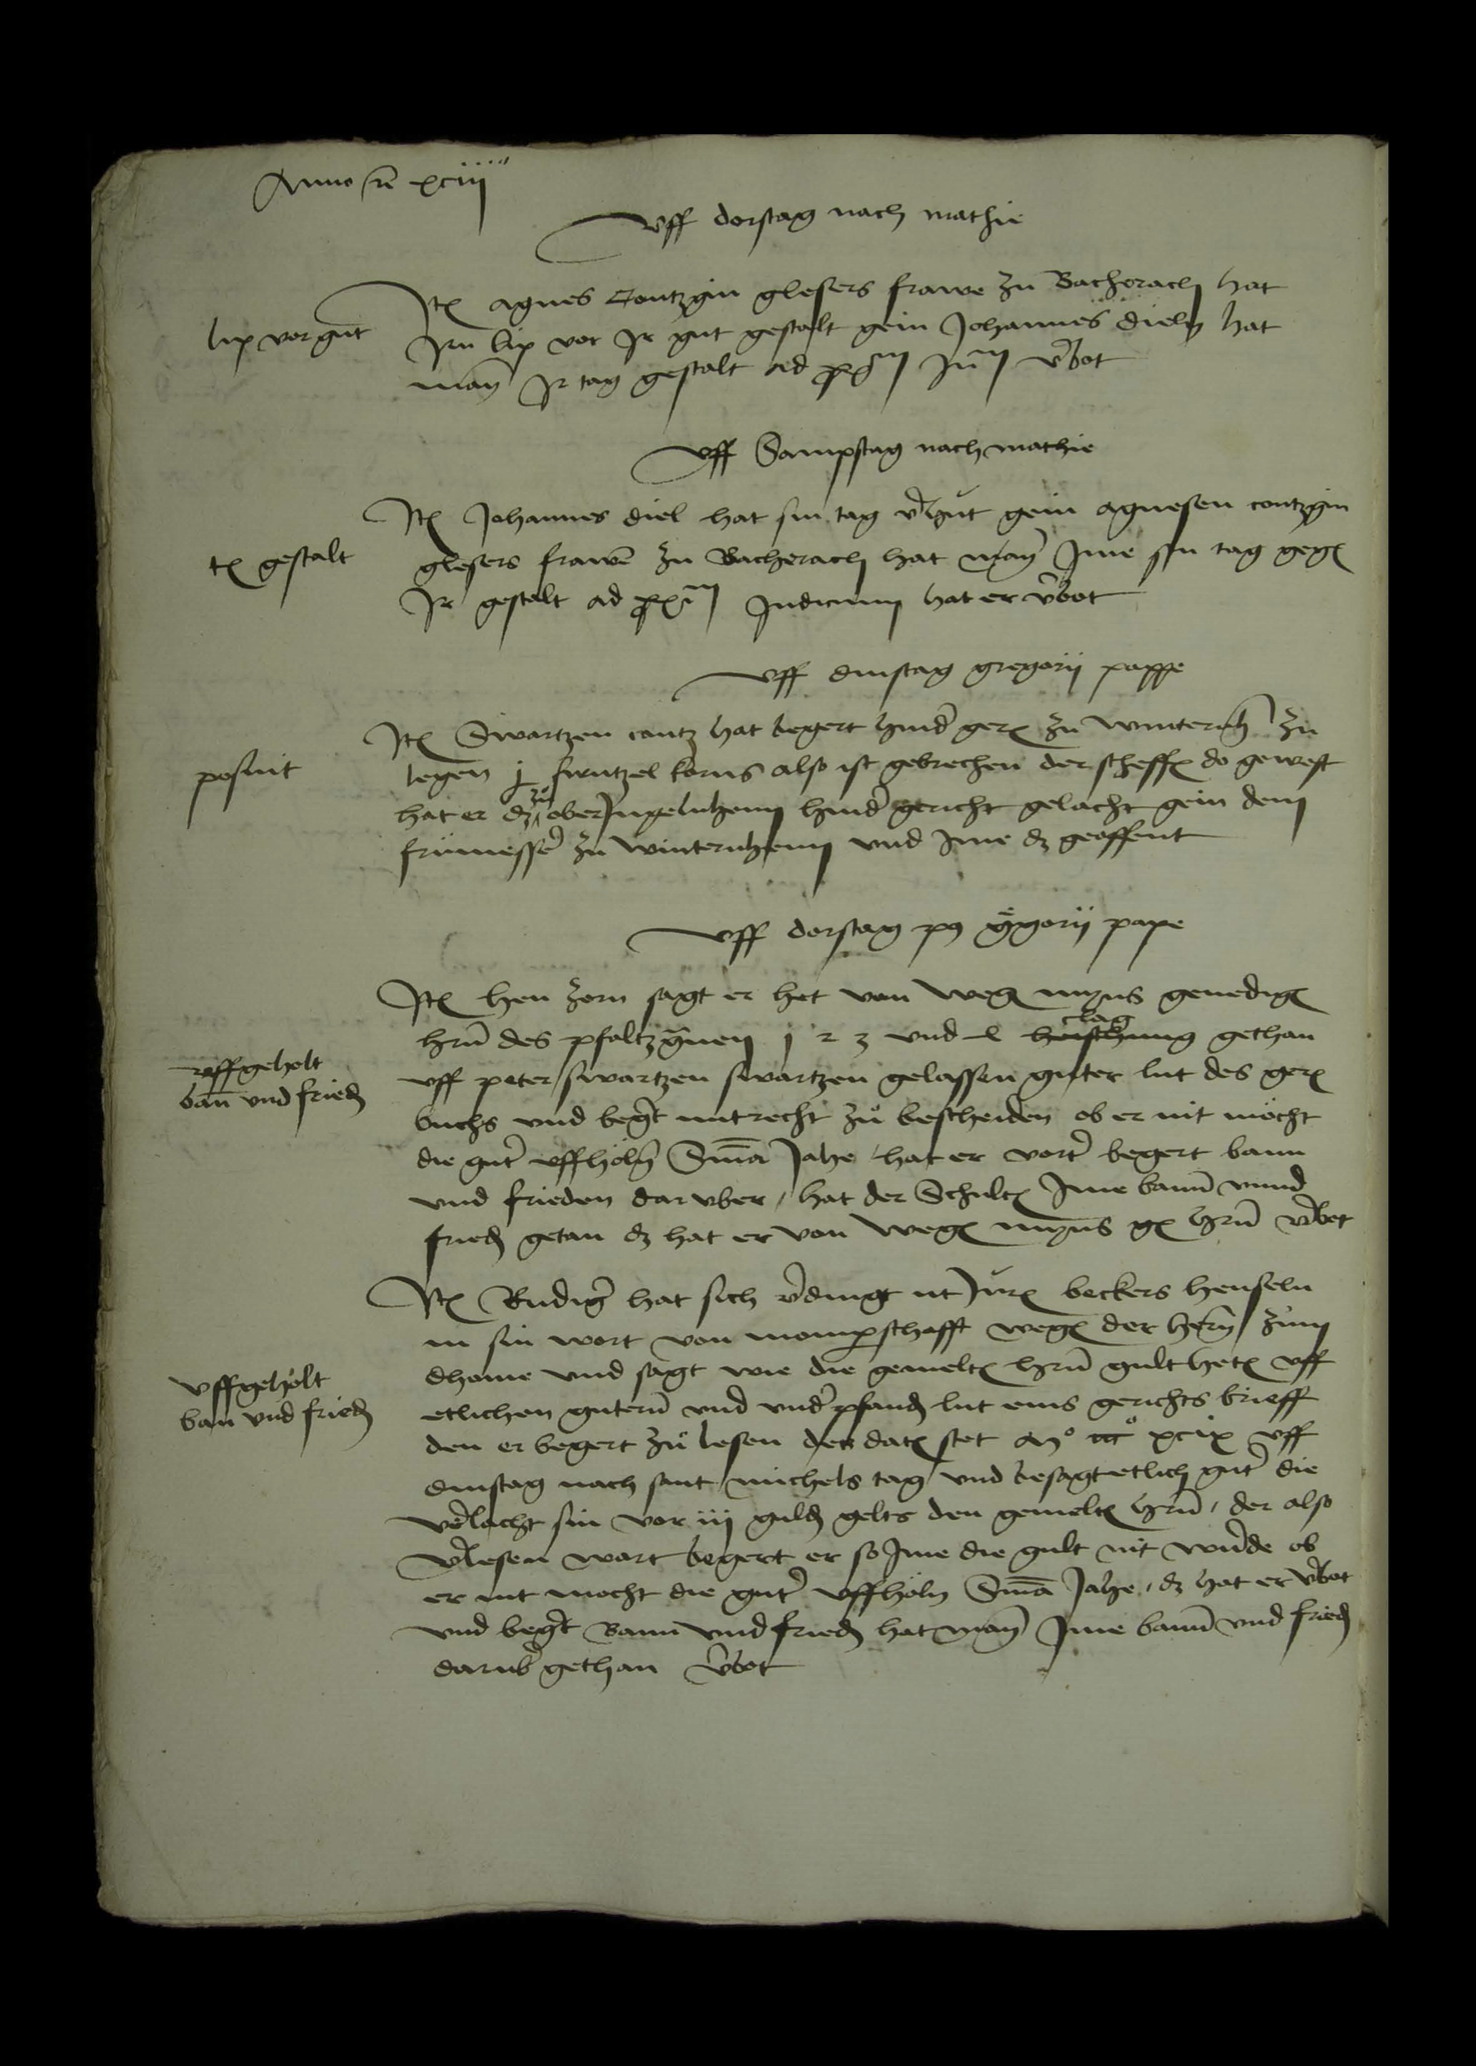 Anno rc xciiij
Uff dorstag nach mathie
lip vor gut
Itz agnes Contzgin glesers frawe zu Bacherach hat
Irn lip vor Ir gut gestalt gein Johannes dieln hat
man Ir tag gestalt ad px̄m Iuͫ v̓bot
Uff Sampstag nach mathie
tz gestalt
Itz Johannes diel hat sin tag v̓hut gein agnesen contzgin
glesers frawē zu Bacherach hat man Ime sin tag gegz
Ir gestalt ad px̄m Judicium hat er v̓bot
Uff dinstag gregorij pappe
posuit
Itz Swartzen contz hat begert hind̓ gerz zu winternh̄ zu
legen j firntzel korns also ist gebrechen der scheffz do gewest
hat er dz zu ober Ingelnheim hind̓ gericht gelacht gein dem
frümesse̓ zu winternheim und Ime dz geoffent
Uff dorstag p9 g̓gorij pape
uffgeholt
ban und friedz
Itz hen zorn sagt er het von wegz myns genedigz
hrn̄ des pfaltzgͣuen j 2 3 und l heischung clag gethan
uff peter swartzen swartzen gelassen guter lut des gerz
buchs und beg̓t mit recht zu bescheiden ob er nit möcht
die gut̓ uffhöln̄ Sn̄ia Jahe / hat er vort̓ begert bann
und frieden dar uber / hat der Schultz Ime bann̄ unnd
friedz getan dz hat er von wegz myns gz hrn̄ v̓bot
uffgeholt
ban und friedz
Itz Rudig̓ hat sich v̓dingt ut Jurz beckers henseln
in sin wort von momp̱schafft wegz der hern̄ zum
dhome und sagt wie die gemeltz hrn̄ gult hetz uff
etlichen gutern̄ und und̓pfandz lut eins gerichts brieff
den er begert zu lesen der datz stet an̊ m̊ xciix uff
dinstag nach sant michels tag und besagt etlich gut̓ die
v̓lacht sin vor iij guldz gelts den gemeltz hrn̄ / der also
v̓lesen wart begert er so Ime die gult nit wurde ob
er nit mocht die gut̓ uffhöln Sn̄ia Jahe / dz hat er v̓bot
und beg̓t Bann und friedz hat man Ime bann̄ und friedz
darub̓ gethan v̓bot